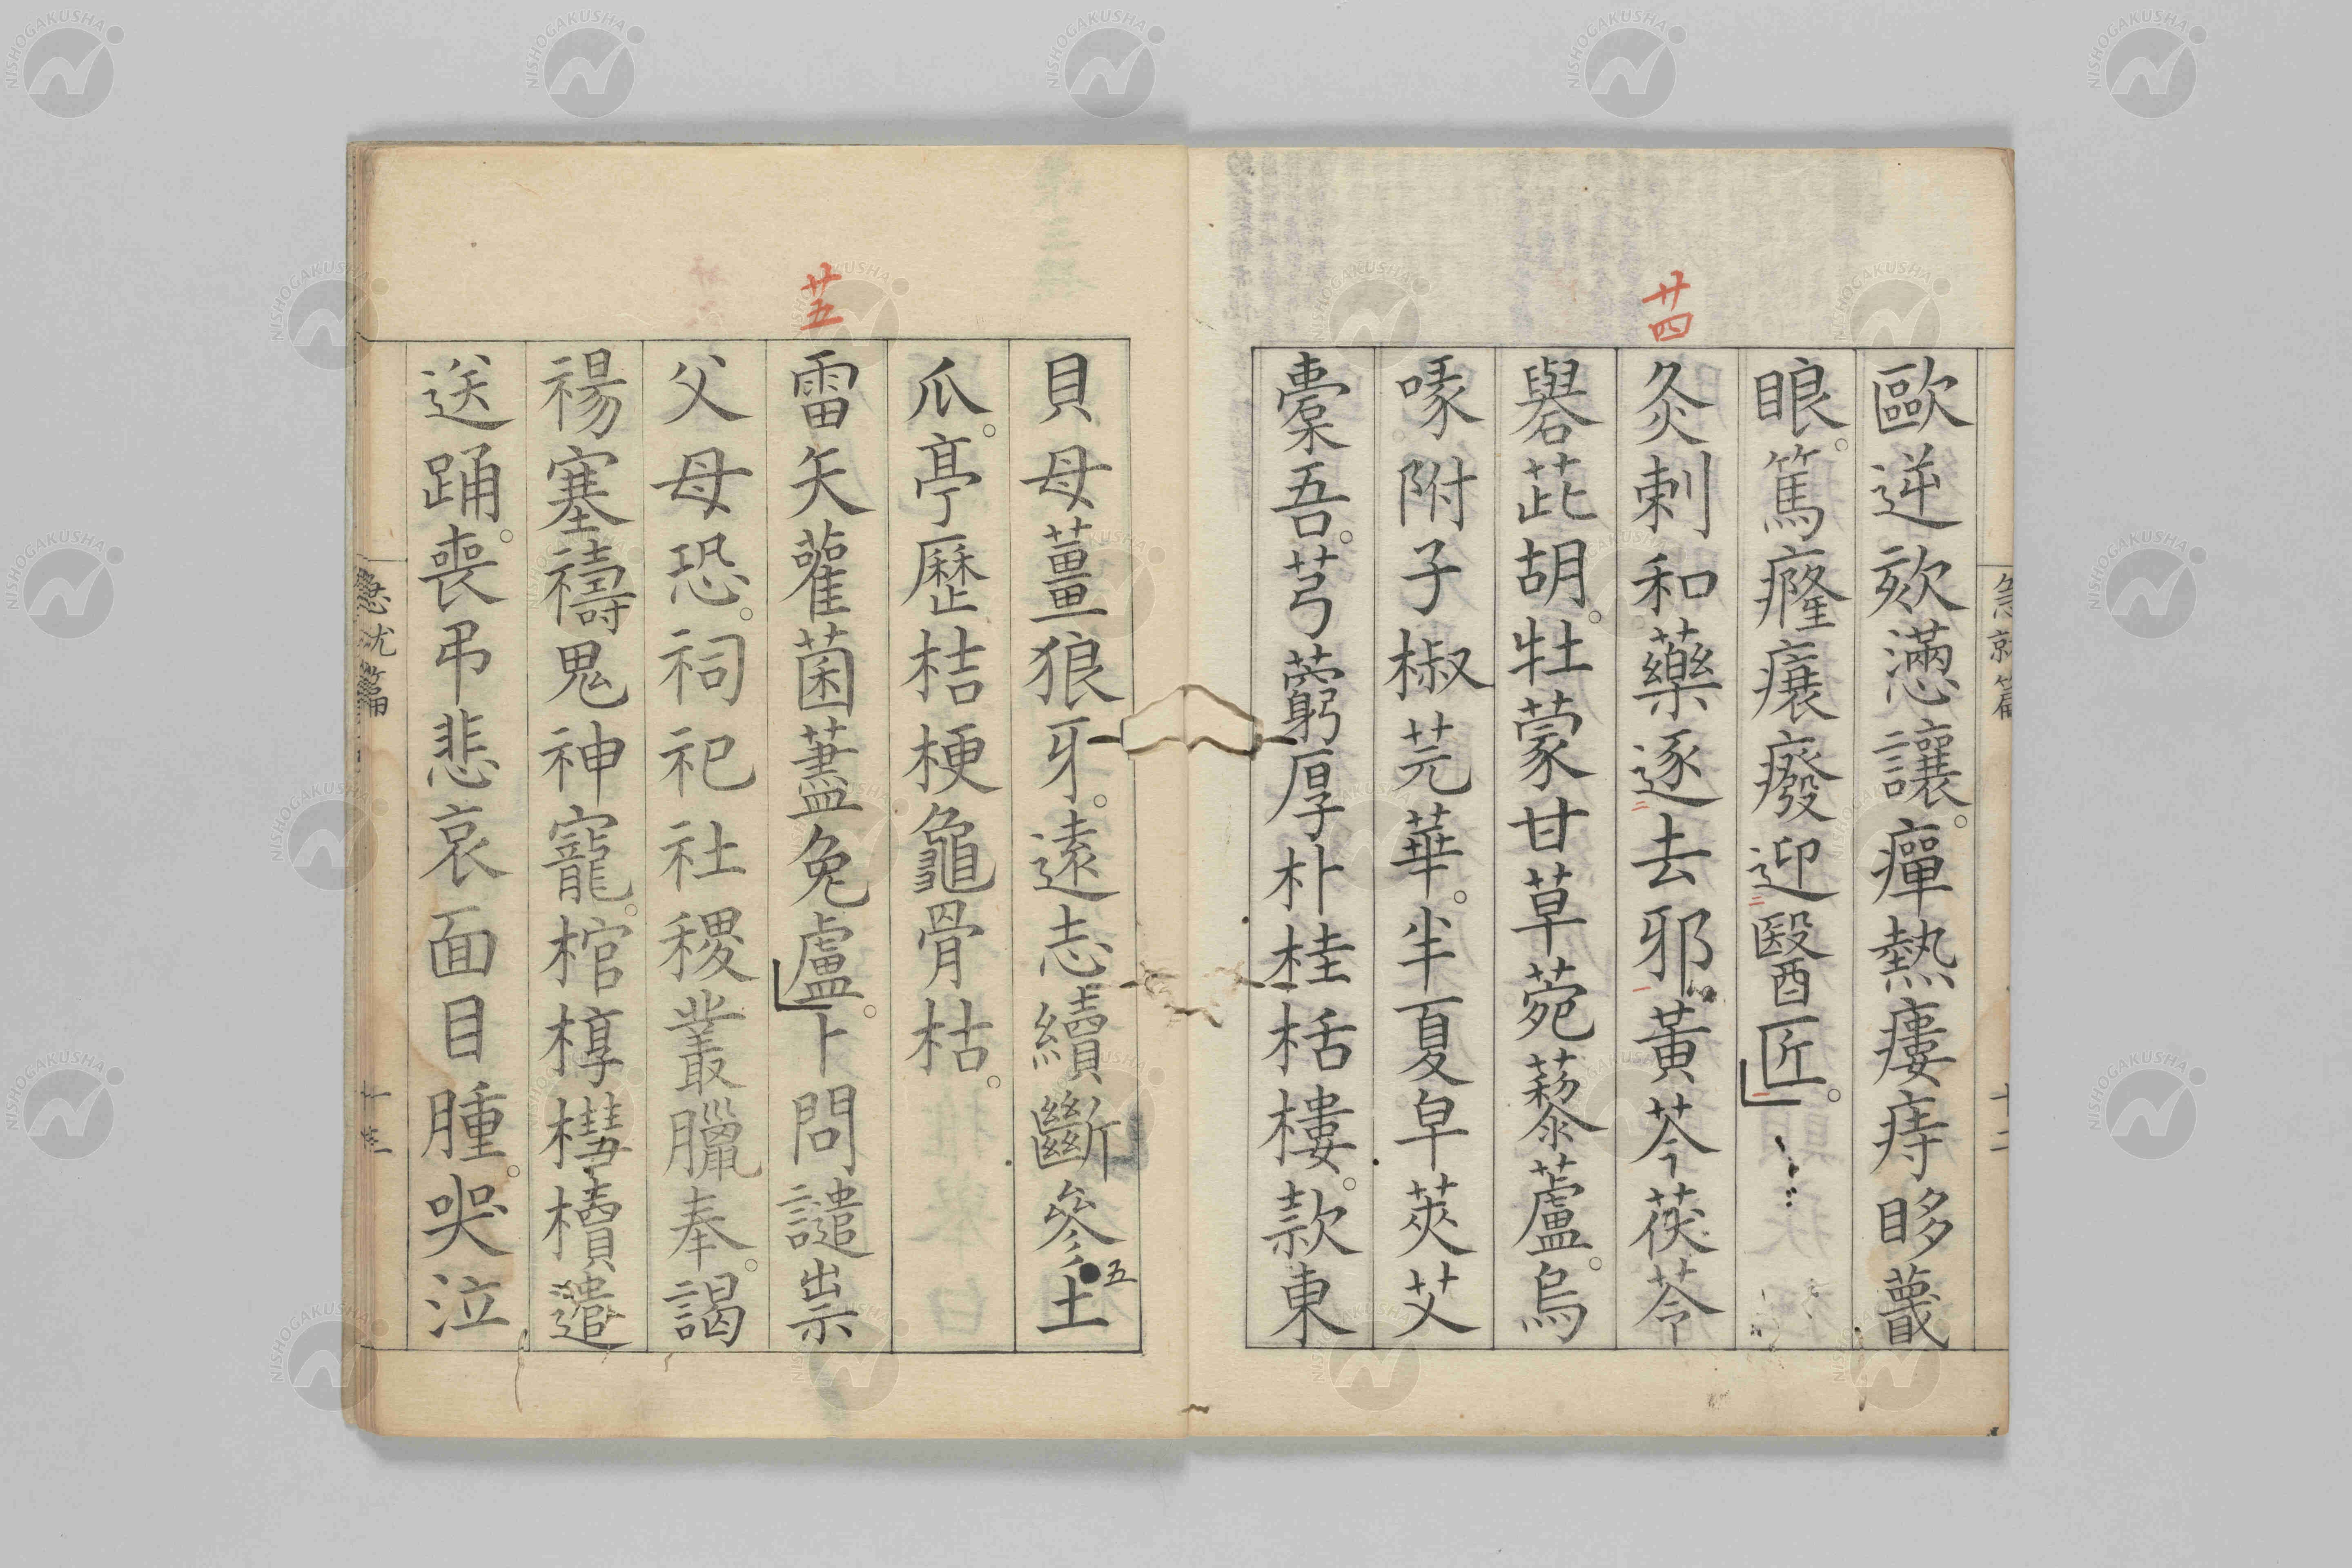 廿四
歐逆欬懣讓。癉熱瘻痔眵䁾
眼。篤癃㾕癈迎醫匠。
灸刺和藥逐去邪黃芩茯苓
礜茈胡。牡蒙甘草菀藜蘆。烏
喙附子椒芫華。半夏皁莢艾
櫜吾。芎藭厚朴桂栝樓。款東
急就篇
十二
廿五
貝母薑狼牙。遠志續斷參土
五
瓜。亭歷桔梗龜骨枯。
雷矢雚菌藎兔盧。卜問譴祟
父母恐。祠祀社稷叢臘奉。謁
禓塞禱鬼神寵。棺椁槥櫝遣
送踊。喪弔悲哀面目腫。哭泣
急就篇
NISHOGAKUSHA